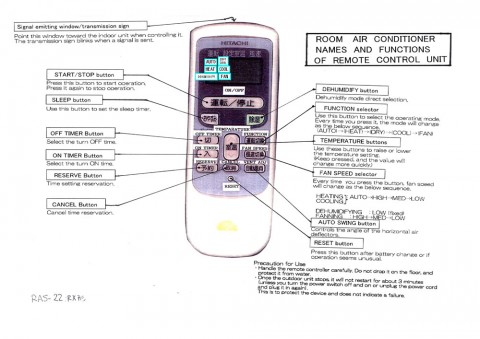 Signal emitting window/transmission sign
Point this window toward the indoor unit when controlling it.
The transmission sign blinks when a signal is sent.
ROOM AIR CONDITIONER
NAMES AND FUNCTIONS
OF REMOTE CONTROL UNIT
HITACHI
AUTO
HEAT COOL
FAN
ON/OFF
運転/停止
START/STOP button
Press this button to start operation.
Press it again to stop operation.
SLEEP button
Use this button to set the sleep timer.
OFF TIMER Button
Select the turn OFF time.
ON TIMER Button
Select the turn ON time.
RESERVE Button
Time setting reservation.
CANCEL Button
Cancel time reservation.
TEMPERATURE
OFF TIMER
FUNCTION
ON TIMER
FAN SPEED
RESERVE
RESET
DEHUMIDIFY button
Dehumidify mode direct selection.
FUNCTION selector
Use this button to select the operating mode.
Every time you press it, the mode will change
as the below sequence.
(AUTO)→(HEAT)→(DRY)→(COOL)→(FAN)
TEMPERATURE buttons
Use these buttons to raise or lower
the temperature setting.
(Keep pressed, and the value will
change more quickly.)
FAN SPEED selector
Every time you press the button, fan speed
will change as the below sequence.
HEATING AUTO→HIGH→MED→LOW
COOLING
DEHUMIDIFYING :LOW (fixed)
FANNING :HIGH→MED→LOW
AUTO SWING button
Controls the angle of the horizontal air
deflectors.
RESET button
Press this button after battery change or if
operation seems unusual.
Precaution for Use
・Handle the remote controller carefully. Do not drop it on the floor, and
protect it from water.
・Once the outdoor unit stops it will not restart for about 3 minutes
(unless you turn the power switch off and on or unplug the power cord
and plug it in again).
This is to protect the device and does not indicate a failure.
RAS-22